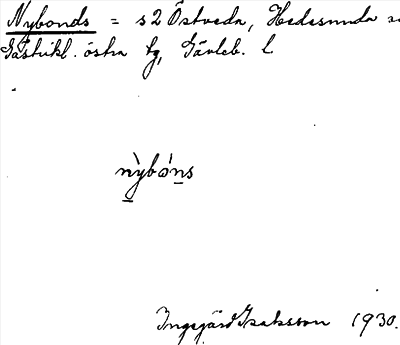 Nybonds = s2 Östveda, Hedesunda s
Gästrikl. östra tg, Gävleb. l.
nỳbó̀ns
Ingegärd Isaksson 1930.